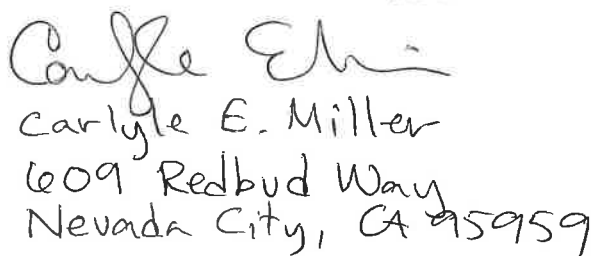 Carlyle E. Miller
609 Redbud Way
Nevada City, CA 95959